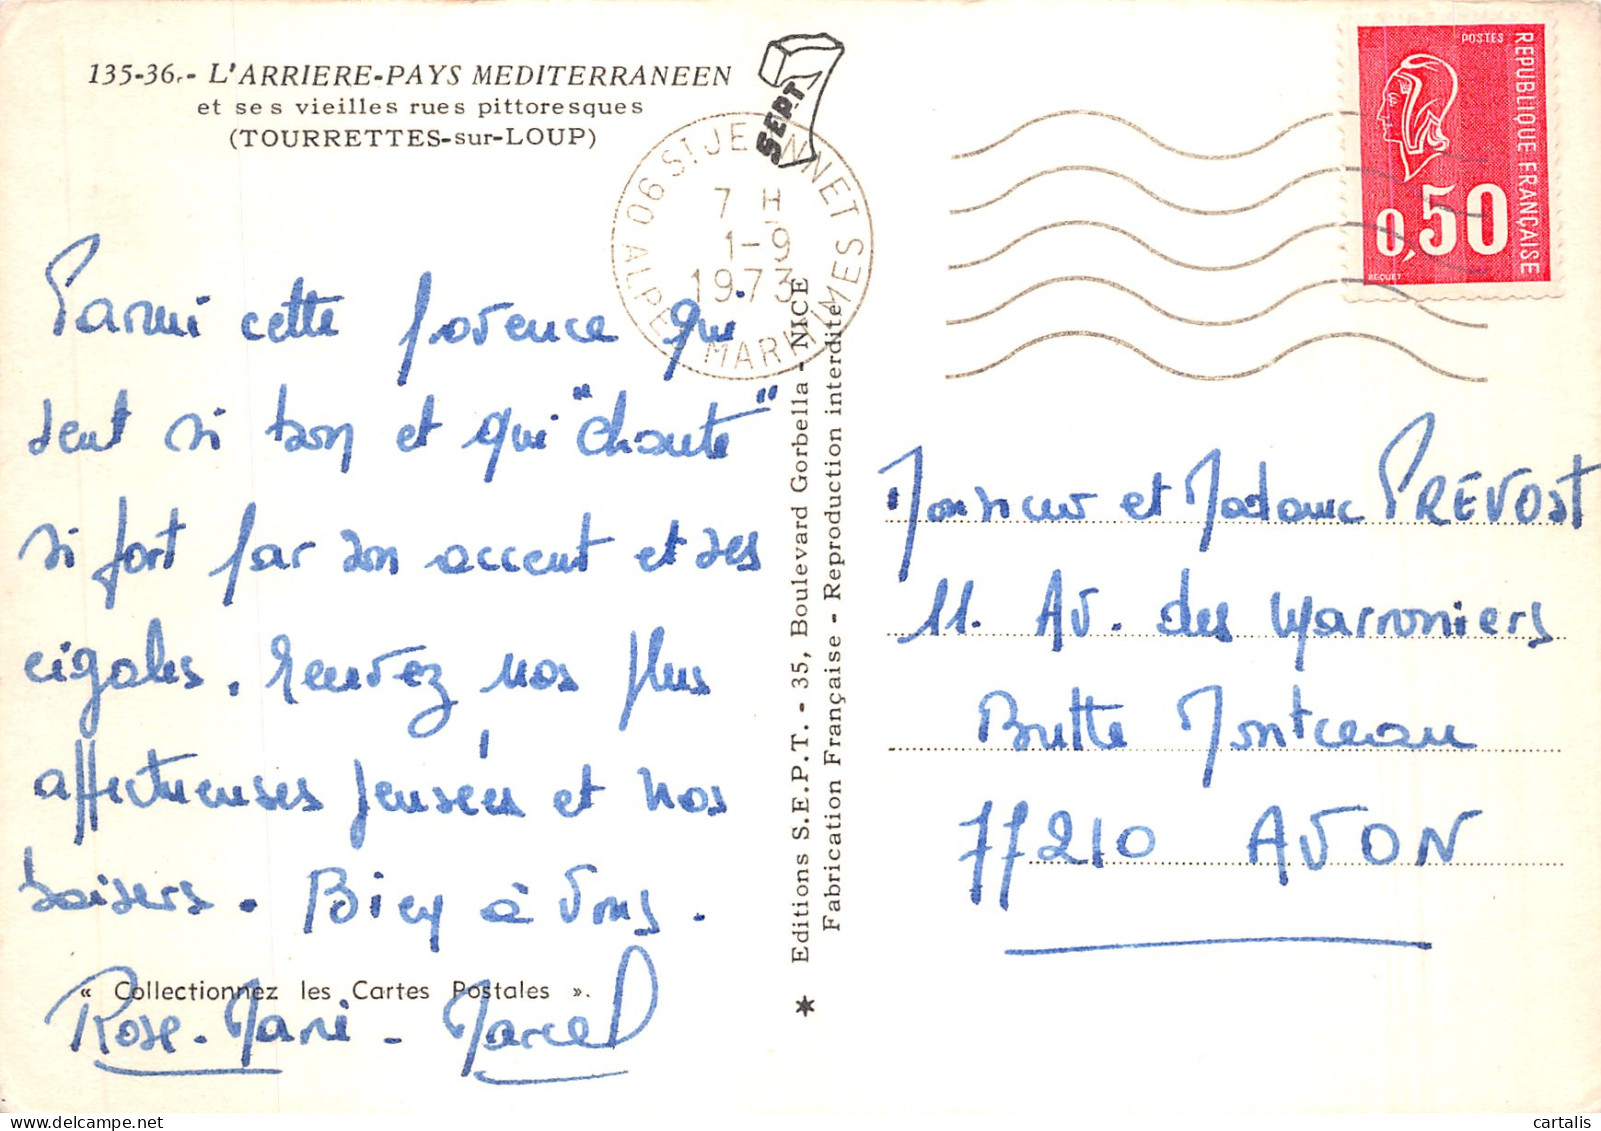 135-36.- L'ARRIERE-PAYS MEDITERRANEEN
et ses vieilles rues pittoresques
(TOURRETTES-sur-LOUP)
SEPT
06 ST JEANNET
ALPES MARITIMES
7 H
1-9
1973
POSTES
REPUBLIQUE FRANÇAISE
0,50
BEQUET
Parmi cette provence qui
sent si bon et qui "chante"
si fort par son accent et ses
cigales. Recevez nos plus
affectueuses pensées et nos
baisers. Bien à vous.
Rose-Marie - Marcel
« Collectionnez les Cartes Postales ».
Editions S.E.P.T. - 35, Boulevard Gorbella - NICE
Fabrication Française - Reproduction interdite
Monsieur et Madame PREVOST
11. Av. des Marronniers
Butte Montceau
77210 AVON
delcampe.net
cartalis